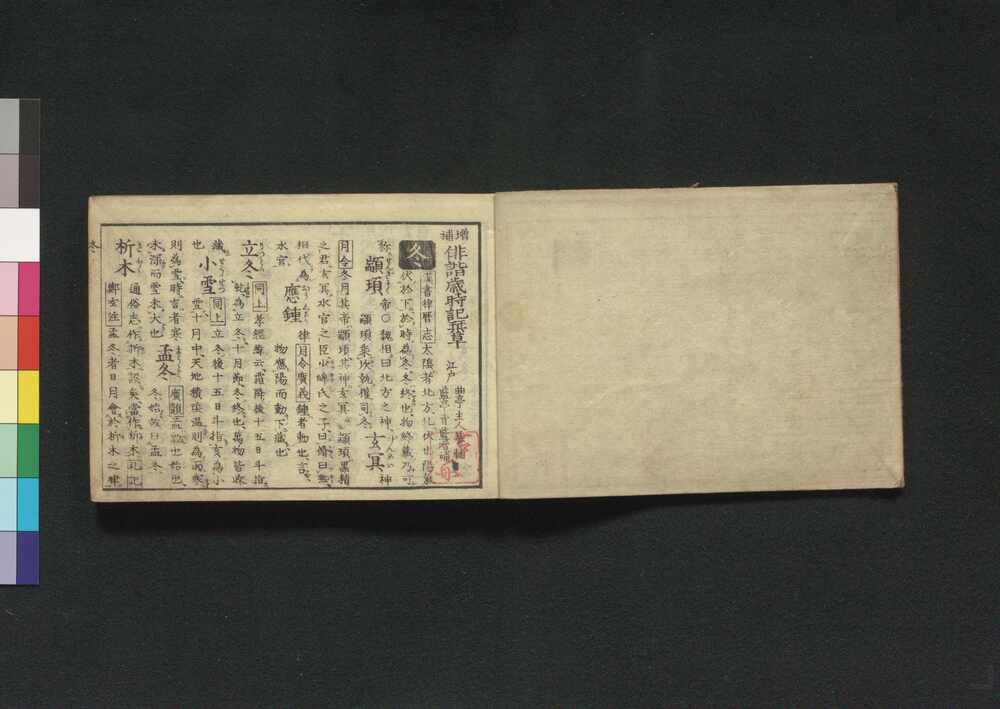 増補
俳諧歳時記栞草
江戸
曲亭主人
藍亭青藍
冬
漢書律暦志 太陰者北方北伏也陽氣
伏於下於時為冬冬終也物終藏乃可
称
顓頊
帝〇魏相曰北方之神
顓頊乘坎執權司冬
玄冥
神
月令 冬月其帝顓頊其神玄冥 顓頊黒精
之君玄冥水官之臣少皞氏之子曰脩曰熙
相代為
水官
應鍾
律 月令廣義 鍾者動也言
物應陽而動下藏也
立冬
同上 孝經緯云霜降後十五日斗指
乾為立冬十月節冬終也萬物皆收
藏
也
小雪
同上 立冬後十五日斗指亥為小
雪十月中天地積陰温則為雨寒
則為雪時言小者寒
未深而雪未大也
孟冬
廣韻 孟
冬始故曰孟冬
析木
通俗志作折木誤矣當作析木 礼記
鄭玄注 孟冬者日月會於析木之津
冬